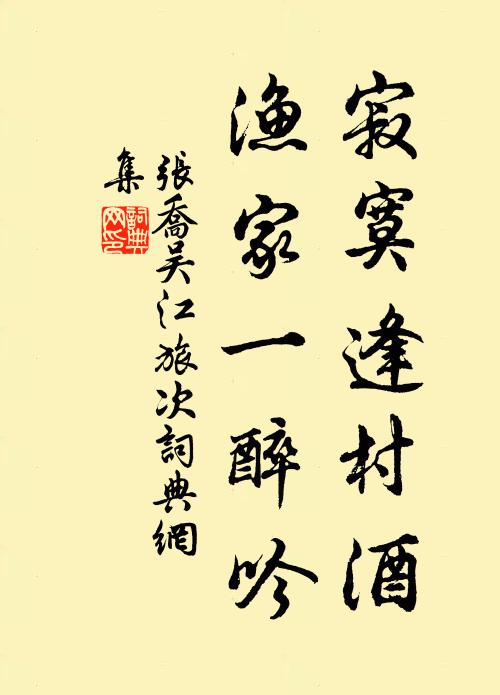 寂寞逢村酒
漁家一醉吟
張喬吳江旅次詞典網
集
詞典
网印